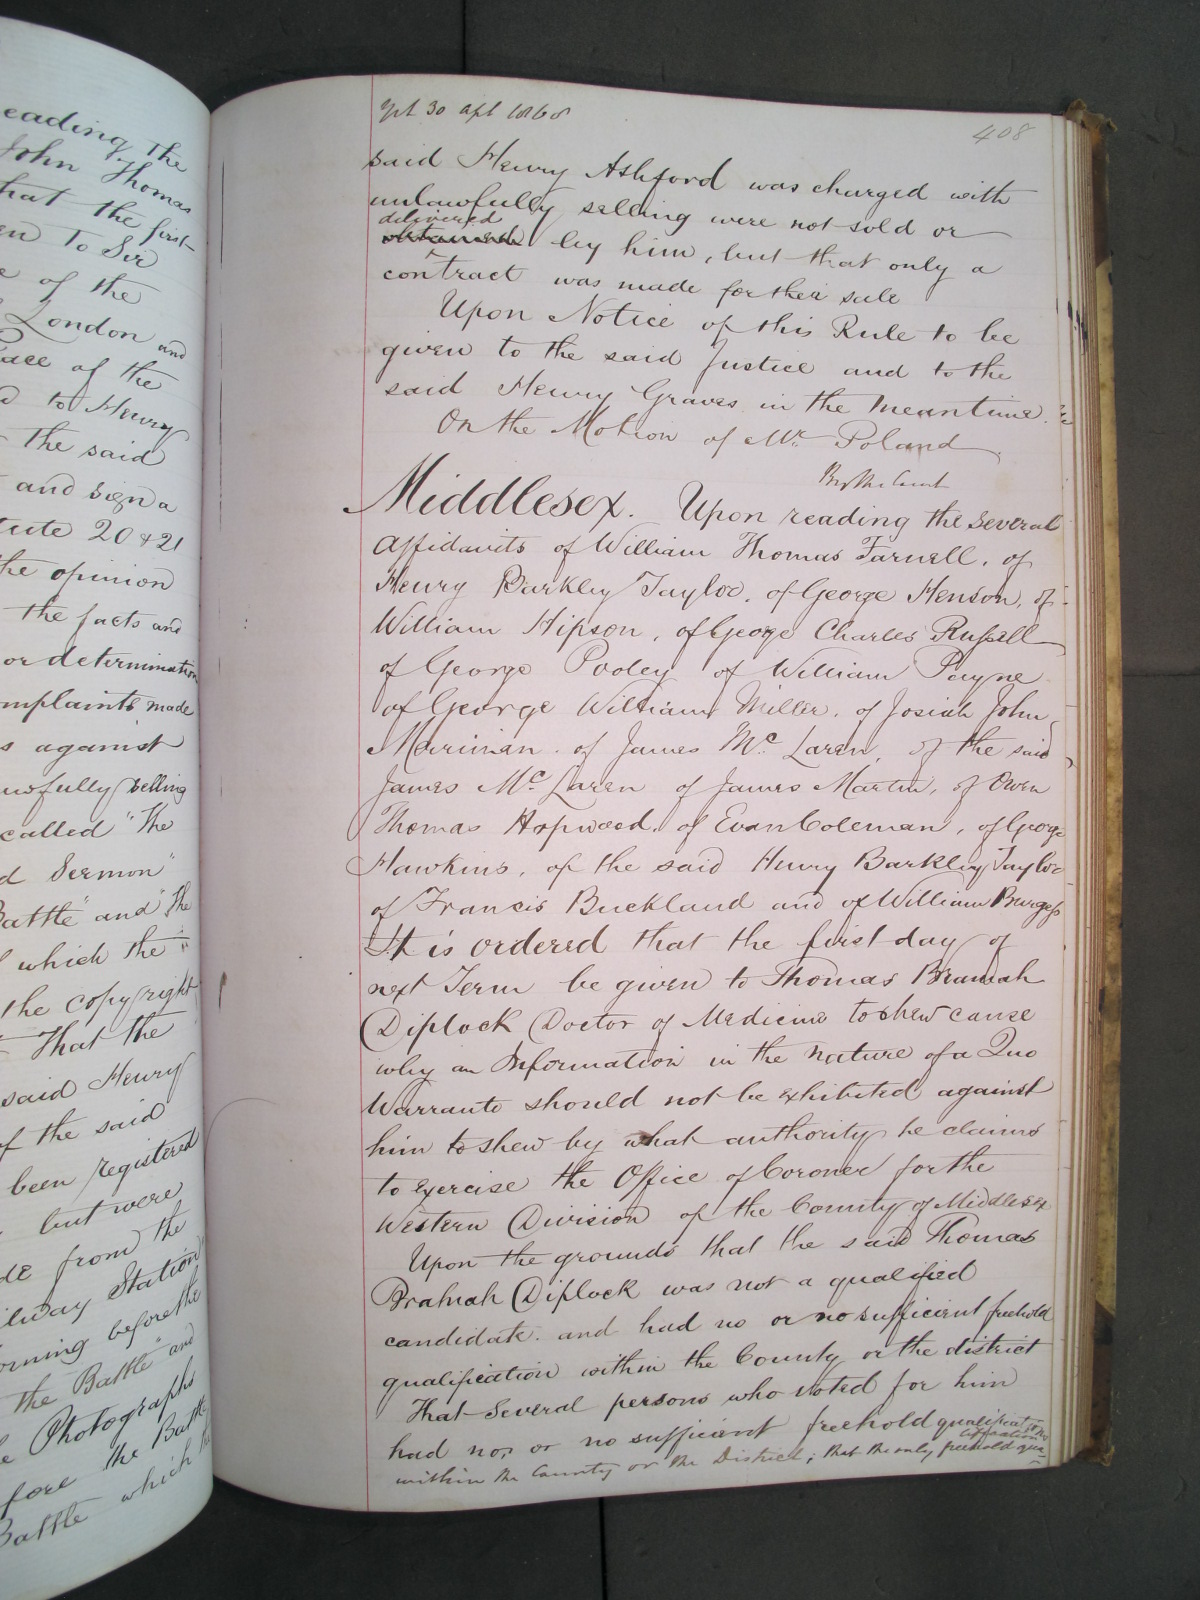 eading the
John Thomas
hat the first
en To Sir
e of the
London and
ace of the
d to Henry
the said
and sign a
tute 20 & 21
the opinion
the facts and
or determination
mplaints made
s against
wfully selling
called "The
d Sermon"
Battle" and "The
which the "
the copyright
That the
said Henry
of the said
been registered
but were
de from the
ilway Station
orning before the
the Battle" and
e Photographs
fore the Battle
Battle which
30 apl 1868
408
said Henry Ashford was charged with
unlawfully selling were not sold or
delivered
by him, but that only a
contract was made for their sale
Upon Notice of this Rule to be
given to the said Justice and to the
said Henry Graves in the meantime.
On the Motion of Mr. Poland
By the Court
Middlesex. Upon reading the several
Affidavits of William Thomas Farnell, of
Henry Barkley Taylor, of George Henson, of
William Hipson, of George Charles Russell
of George Pooley of William Payne
of George William Miller, of Josiah John
Merriman. of James Mc. Laren, of the said
James Mc. Laren of James Martin, of Owen
Thomas Hopwood, of Evan Coleman, of George
Hawkins, of the said Henry Barkley Taylor
of Francis Buckland and of William Burgess
It is ordered that the first day of
next Term be given to Thomas Bramah
Diplock Doctor of Medicine to shew cause
why an Information in the nature of a Quo
Warranto should not be exhibited against
him to shew by what authority he claims
to exercise the Office of Coroner for the
Western Division of the County of Middlesex
Upon the grounds that the said Thomas
Bramah Diplock was not a qualified
candidate. and had no or no sufficient freehold
qualification within the County or the district
That Several persons who voted for him
had no, or no sufficient freehold qualification
within the County or the District; that the only freehold qua-
lification